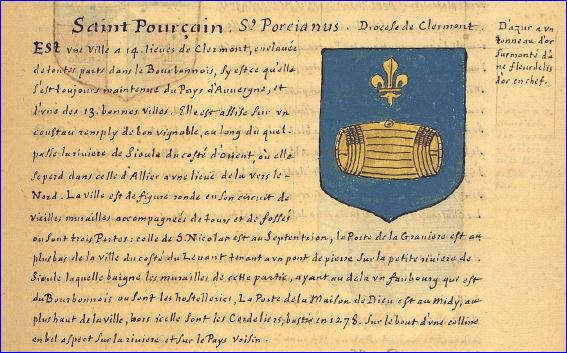 Saint Pourçain. Sᵗ Porcianus. Diocese de Clermont.
Est vne ville a 14. lieues de Clermont, enclauée
de toutes parts dans le Bourbonnois, sy est ce qu'elle
s'est toujours maintenue du Pays d'Auuergne, et
l'vne des 13. bonnes villes. Elle est assise sur vn
coustau remply de bon vignoble, au long du quel
passe la riuiere de Sioule du costé d'Orient, ou elle
se perd dans celle d'Allier a vne lieüe de la vers le
Nord. La ville est de figure ronde en son circuit de
vieilles murailles accompagnées de tours et de fossés
ou sont trois Portes: celle de S. Nicolas est au Septentrion, la Poste de la Graniere est au
plus bas de la ville du costé du Leuant tenant a vn pont de pierre sur la petite riuiere de
Sioule laquelle baigne les murailles de cette partie, ayant au dela vn faubourg qui est
du Bourbonnois ou sont les hostelleries, La Poste de la Maison de Dieu est au Midy, au
plus haut de la ville, hors icelle sont les Cordeliers, bastis en 1278. Sur le bout d'vne colline
en bel aspect sur la riuiere et sur le Pays Voisin.
D'azur a vn
tonneau d'or
surmonté d'v
ne fleur de lis
d'or en chef.